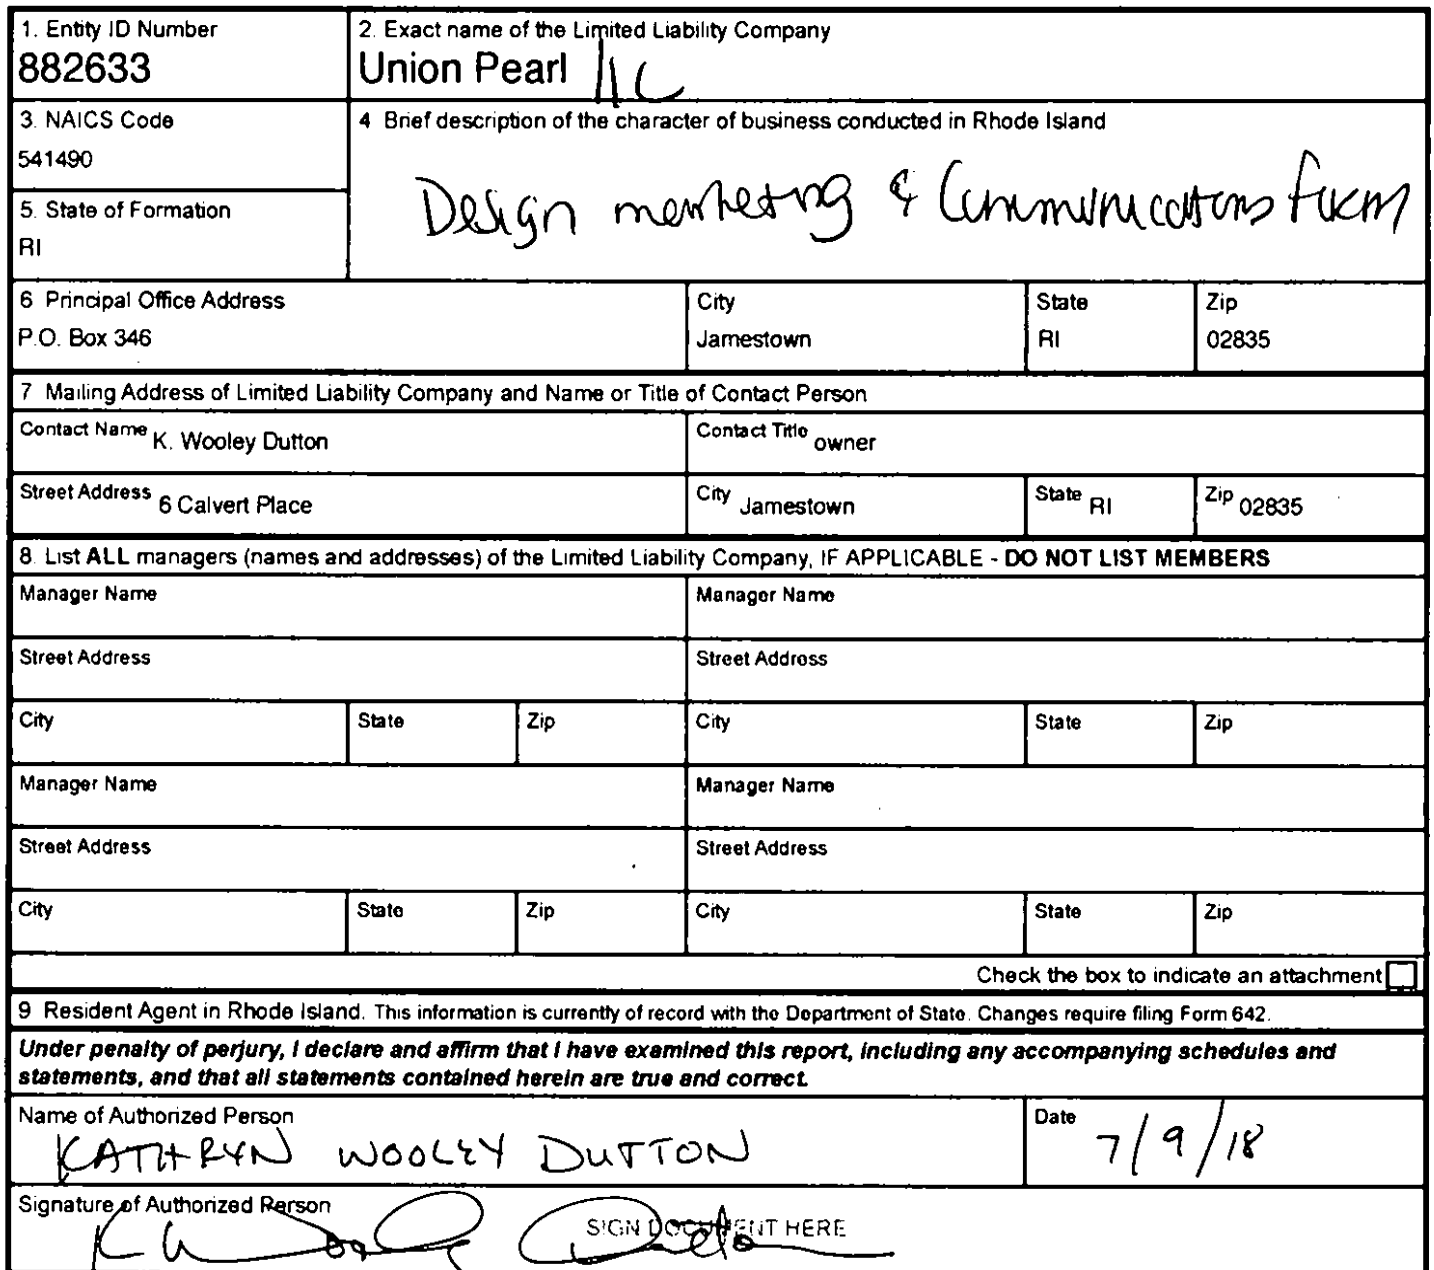 1. Entity ID Number
882633
2. Exact name of the Limited Liability Company
Union Pearl llc
3. NAICS Code
541490
4 Brief description of the character of business conducted in Rhode Island
Design marketing & Communications firm
5. State of Formation
RI
6 Principal Office Address
P.O. Box 346
City
Jamestown
State
RI
Zip
02835
7 Mailing Address of Limited Liability Company and Name or Title of Contact Person
Contact Name K. Wooley Dutton
Contact Title owner
Street Address 6 Calvert Place
City Jamestown
State RI
Zip 02835
8. List ALL managers (names and addresses) of the Limited Liability Company, IF APPLICABLE - DO NOT LIST MEMBERS
Manager Name
Manager Name
Street Address
Street Address
City
State
Zip
City
State
Zip
Manager Name
Manager Name
Street Address
Street Address
City
State
Zip
City
State
Zip
Check the box to indicate an attachment
9 Resident Agent in Rhode Island. This information is currently of record with the Department of State. Changes require filing Form 642.
Under penalty of perjury, I declare and affirm that I have examined this report, including any accompanying schedules and
statements, and that all statements contained herein are true and correct.
Name of Authorized Person
KATHRYN WOOLEY DUTTON
Date 7/9/18
Signature of Authorized Person
K Wooley Dutton
SIGN DOCUMENT HERE